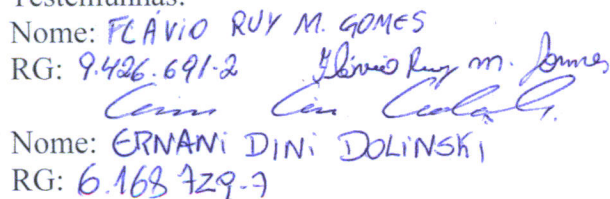 Testemunhas:
Nome: FLÁVIO RUY M. GOMES
RG: 9.426.691-2 Flávio Ruy M. Gomes
Nome: ERNANI DINI DOLINSKI
RG: 6.168 729-7